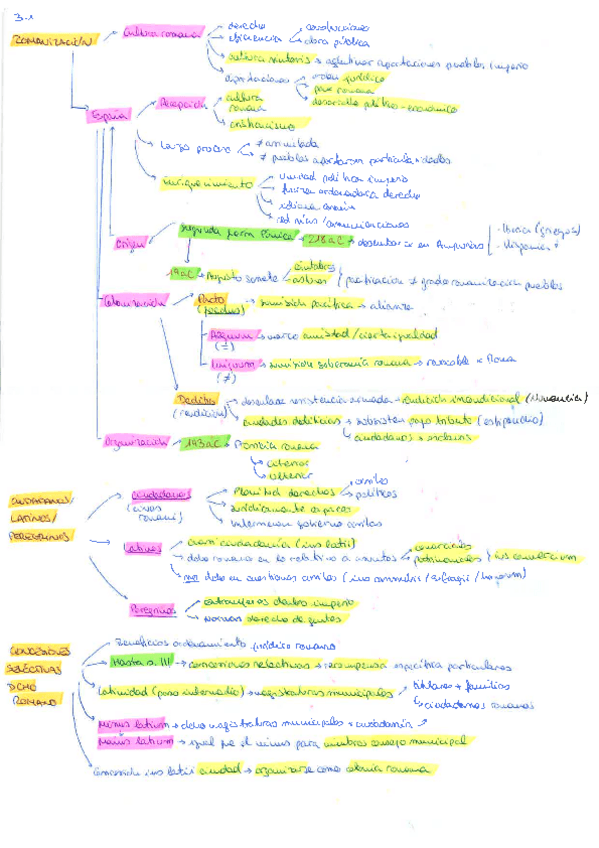 3.1
ROMANIZACIÓN → Cultura romana → derecho → construcciones
eficiencia → obra pública
cultura síntesis → aglutinar aportaciones pueblos imperio
aportaciones → orden jurídico
paz romana
desarrollo político-económico
España → Recepción → cultura romana
cristianismo
Largo proceso → ≠ asimilada
≠ pueblos aportaron particularidades
enriquecimiento → unidad política imperio
fuerza ordenadora derecho
idioma común
red vías comunicaciones
origen → Segunda Guerra Púnica → 218 a.C → desembarco en Ampurias
- Iberia (griegos)
- Hispania
19 a.C → Augusto somete → cántabros
astures } pacificación ≠ grado romanización pueblos
Colonización → Pacto (foedus) → sumisión pacífica → alianza
Aequum (=) → marco amistad/cierta igualdad
Iniquum (≠) → sumisión soberanía romana → revocable x Roma
Deditio (rendición) → desenlace resistencia armada → rendición incondicional (Numancia)
ciudades dediticias → subsisten pago tributo (estipendio)
ciudadanos → esclavos
Organización → 197 a.C → Provincia romana
citerior
ulterior
CIUDADANOS/
LATINOS/
PEREGRINOS
Ciudadanos (cives romani) → Plenitud derechos → civiles
políticos
jurídicamente capaces
intervienen gobierno civitas
Latinos → cuasi ciudadanía (ius latii)
dcho romano en lo relativo a asuntos → comerciales
patrimoniales } ius comercium
no dcho en cuestiones civiles (ius connubii / sufragii / honorum)
Peregrinos → extranjeros dentro imperio
Normas derecho de gentes
CONCESIONES
SELECTIVAS
DCHO
ROMANO
Beneficios ordenamiento jurídico romano
Hasta s. III → concesiones selectivas → recompensa específica particulares
Latinidad (paso intermedio) → magistraturas municipales → titulares + familias
ciudadanos romanos
Minus latium → dcho magistraturas municipales → ciudadanía
Maius latium → igual que el minus para miembros consejo municipal
Concesión ius latii ciudad → organizarse como colonia romana